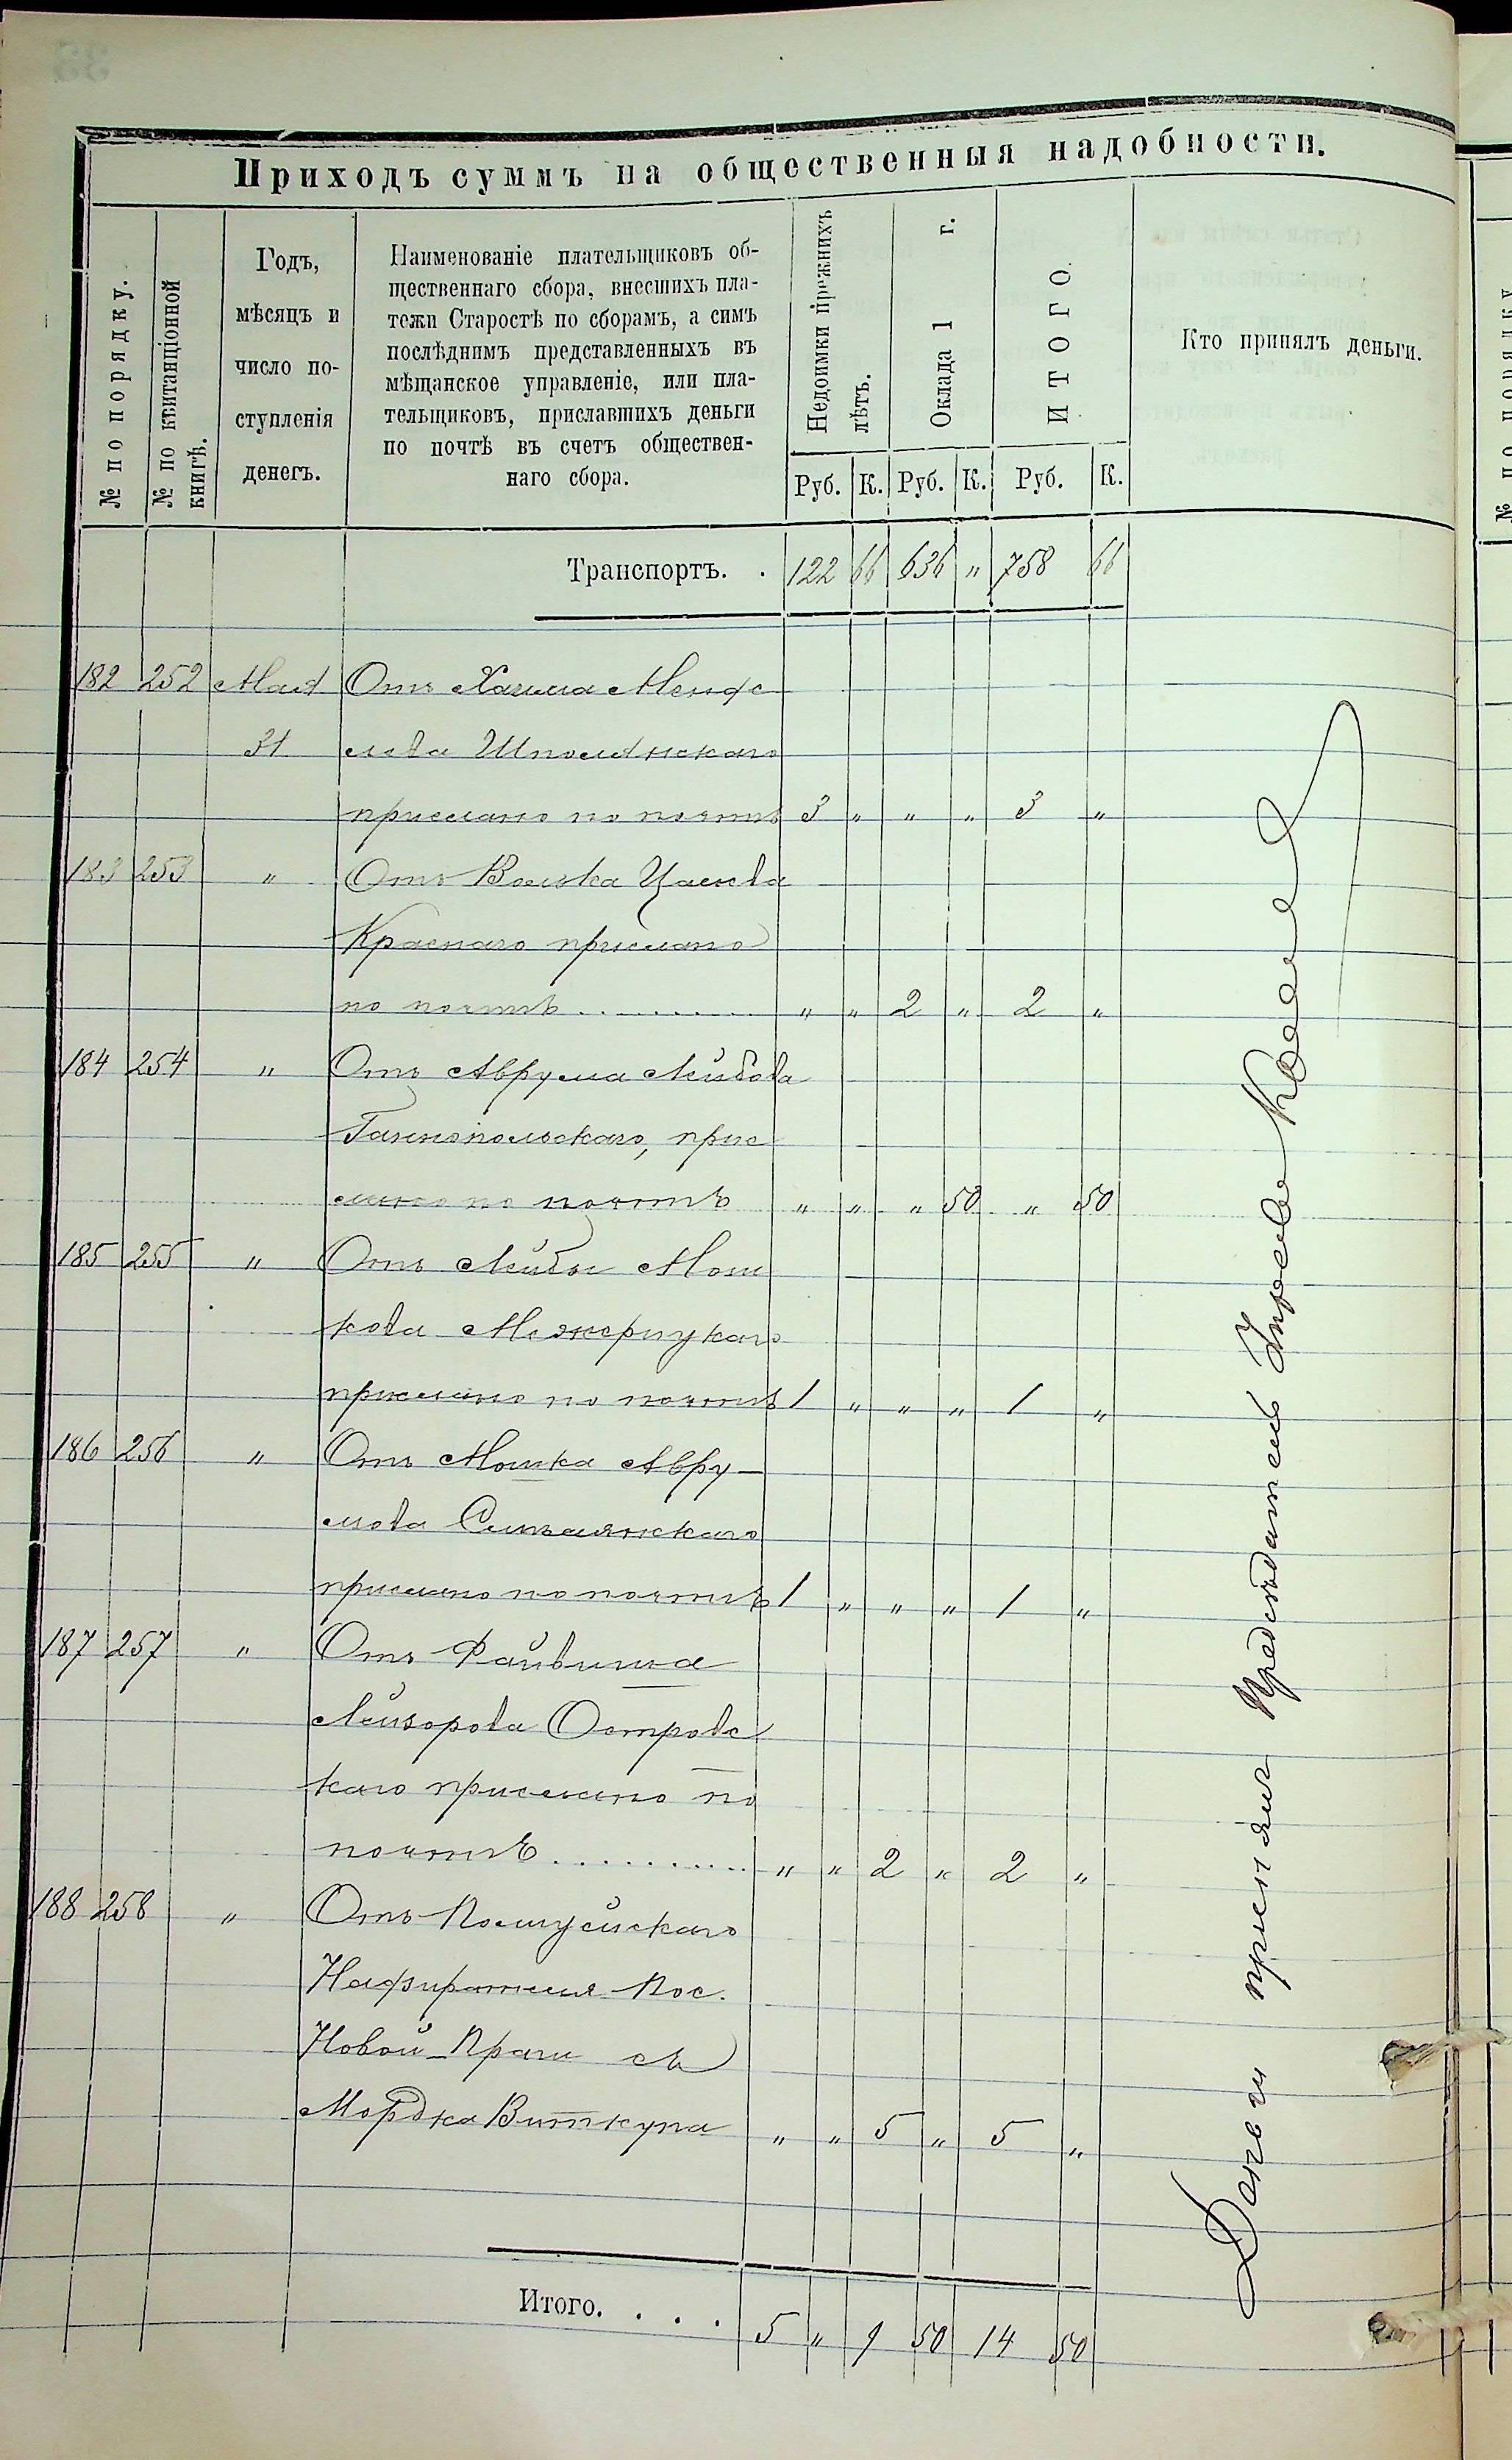 Приходъ суммъ на общественныя надобности.
№ по порядку.
№ по квитанціонной
книгѣ.
Годъ,
мѣсяцъ и
число по-
ступленія
денегъ.
Наименованіе плательщиковъ об-
щественнаго сбора, внесшихъ пла-
тежи Старостѣ по сборамъ, а симъ
послѣднимъ представленныхъ въ
мѣщанское управленіе, или пла-
тельщиковъ, приславшихъ деньги
по почтѣ въ счетъ обществен-
наго сбора.
Недоимки прежнихъ
лѣтъ.
Оклада 1 г.
ИТОГО.
Кто принялъ деньги.
Руб. К. Руб. К. Руб. К.
Транспортъ. . 122 66 636 " 758 66
182 252 Мая Отъ Хаима Менде
31 лева Шполянскаго
прислано по почтѣ 3 " " " 3 "
183 253 " Отъ Волька
Краснаго прислано
по почтѣ .......... " " 2 " 2 "
184 254 " Отъ Аврума Лейбова
Тагнопольскаго, прис
лано по почтѣ " " " 50 " 50
185 255 " Отъ Лейбы Мош
кова Межерицкаго
прислано по почтѣ 1 " " " 1 "
186 256 " Отъ Мошка Авру-
мова
прислано по почтѣ 1 " " " 1 "
187 257 " Отъ Файвиша
Лейзорова Островс
каго прислано по
почтѣ .......... " " 2 " 2 "
188 258 " Отъ Полицейскаго
Надзирателя Пос.
Новой-Праги съ
Мордка Виткупа " " 5 " 5 "
Итого. . . . 5 " 9 50 14 50
Деньги принялъ Предсѣдатель